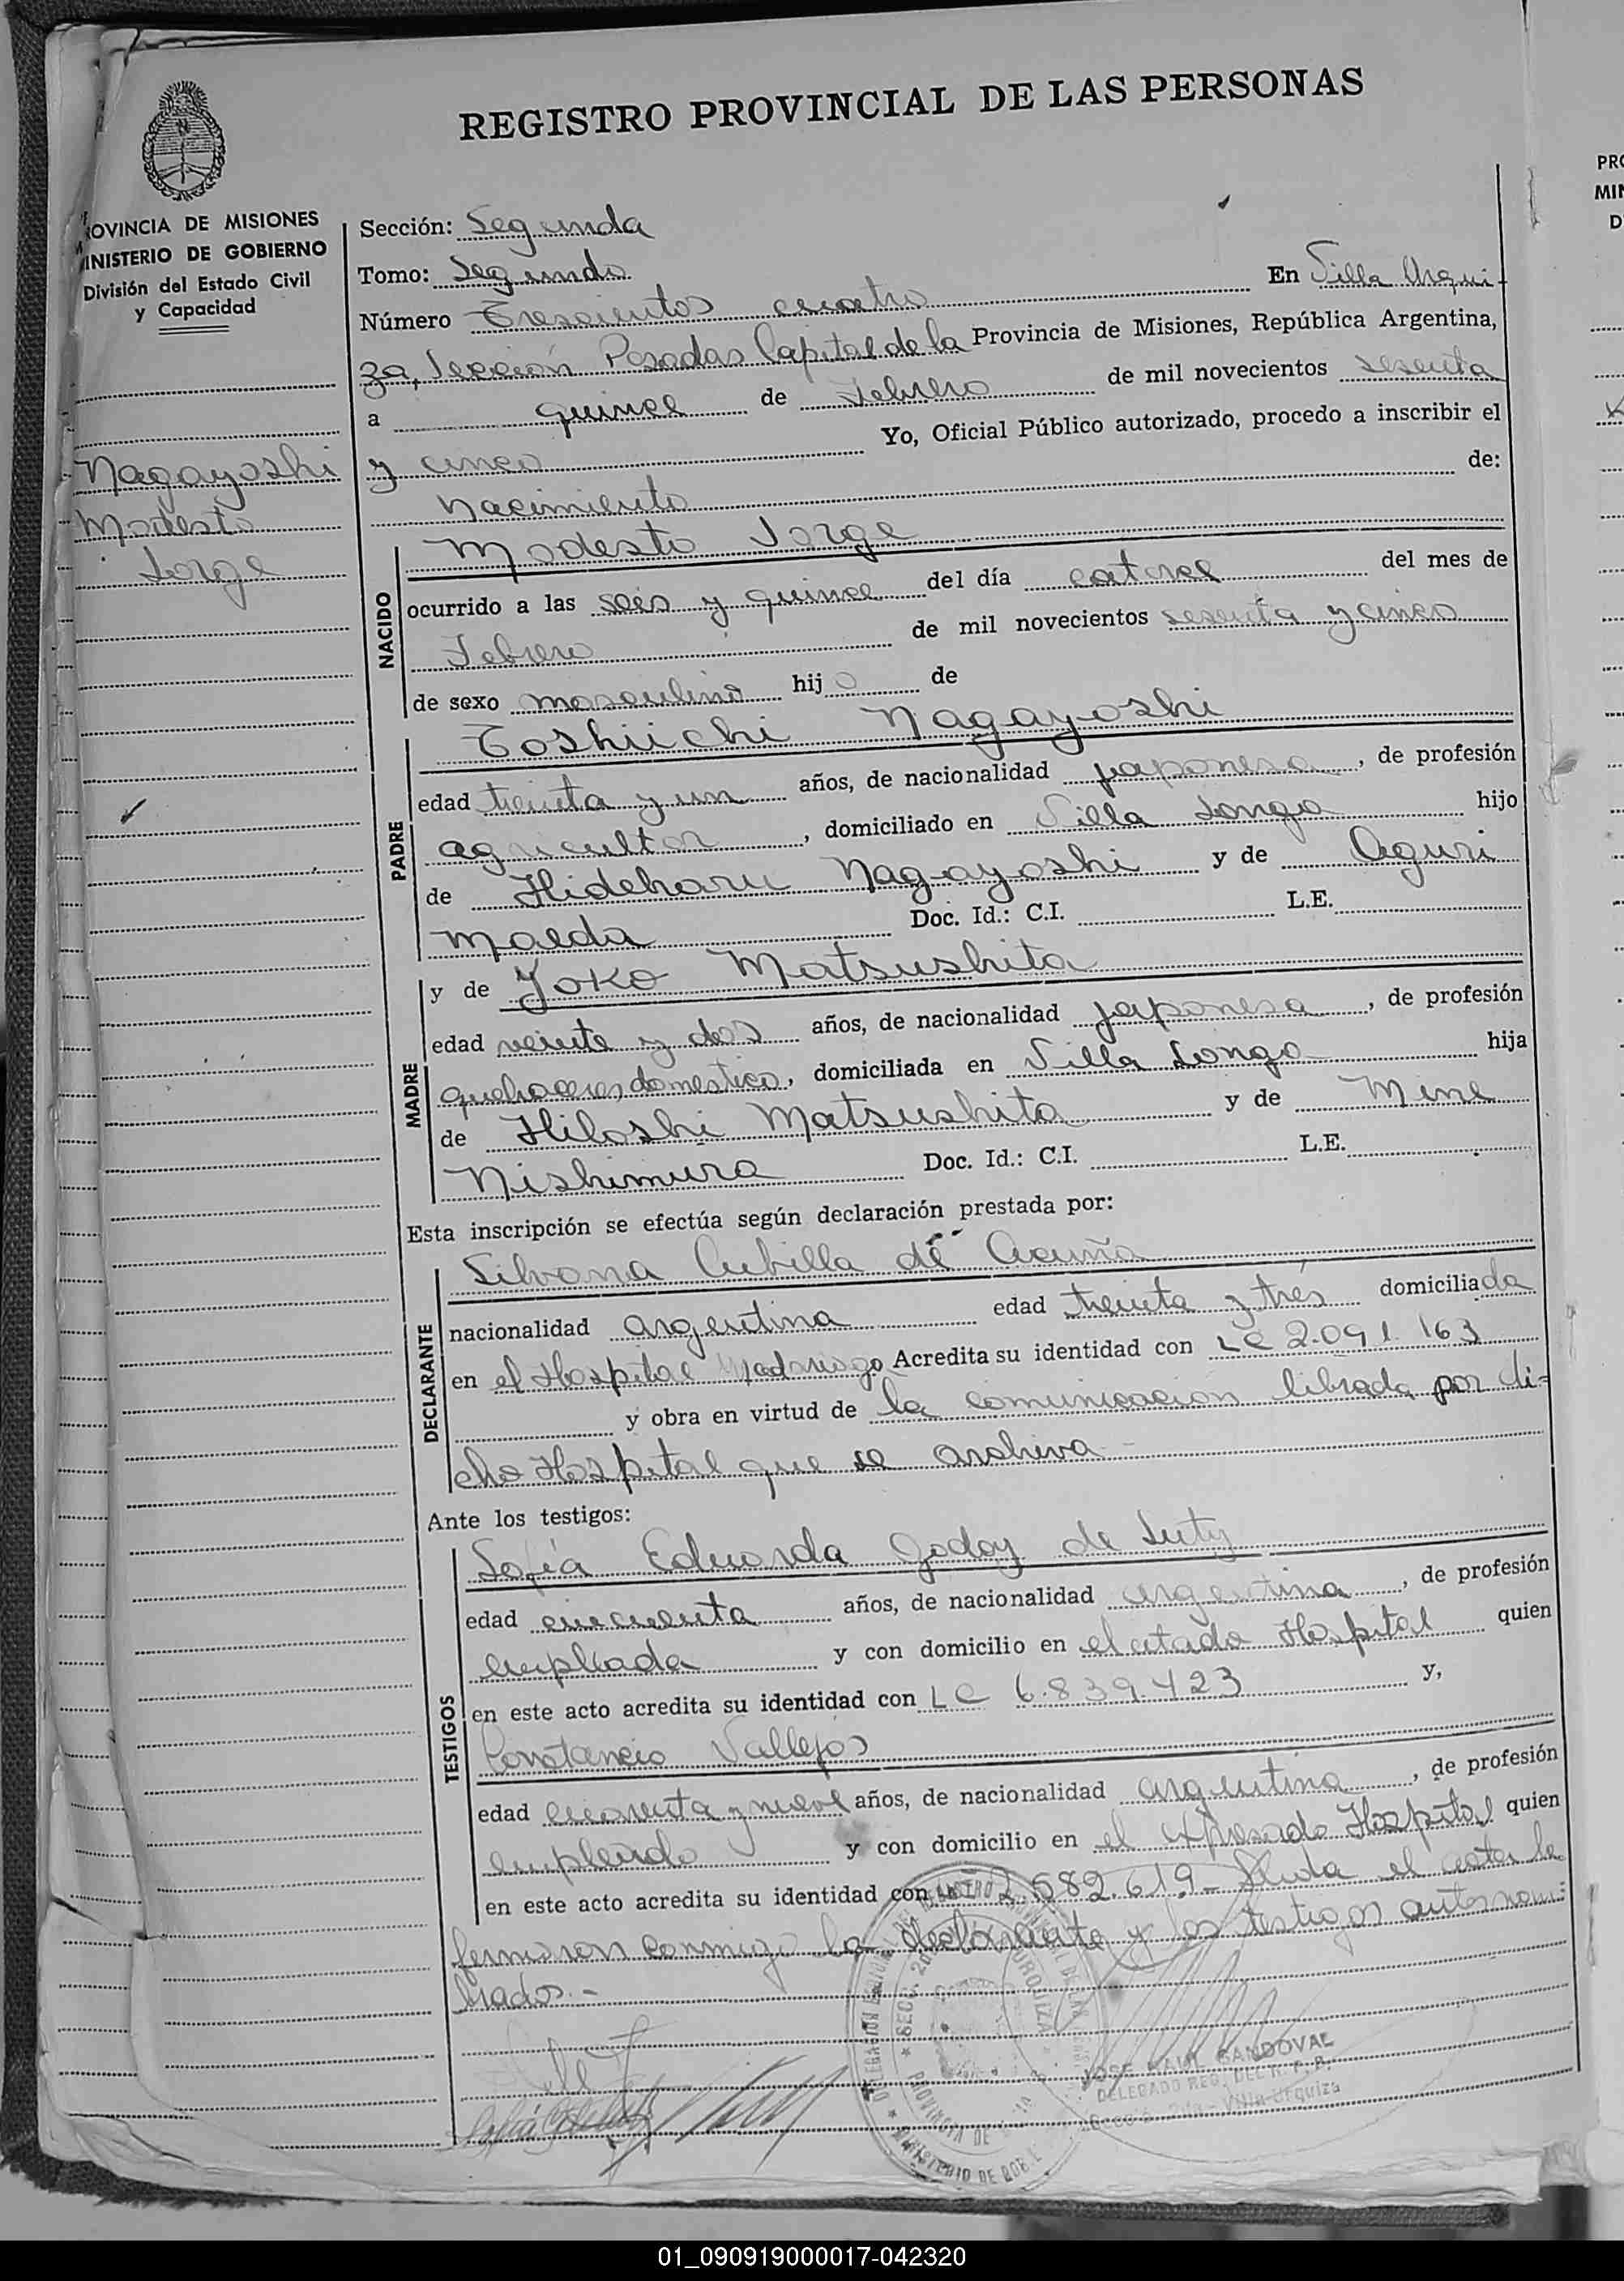 REGISTRO PROVINCIAL DE LAS PERSONAS
ROVINCIA DE MISIONES
INISTERIO DE GOBIERNO
División del Estado Civil
y Capacidad
Nagayoshi
Modesto
Jorge
Sección: Segunda
Tomo: Segundo
Número Trescientos cuatro En Villa Urqui-
za, Sección Posadas Capital de la Provincia de Misiones, República Argentina,
a quince de Febrero de mil novecientos sesenta
y cinco Yo, Oficial Público autorizado, procedo a inscribir el
nacimiento de:
NACIDO
Modesto Jorge
ocurrido a las seis y quince del día catorce del mes de
Febrero de mil novecientos sesenta y cinco
de sexo masculino hijo de
PADRE
Toshiichi Nagayoshi
edad treinta y un años, de nacionalidad japonesa, de profesión
agricultor, domiciliado en Villa Longa hijo
de Hideharu Nagayoshi y de Aguri
Maeda Doc. Id.: C.I. L.E.
MADRE
y de Yoko Matsushita
edad veinte y dos años, de nacionalidad japonesa, de profesión
quehaceres domestico, domiciliada en Villa Longa hija
de Hiloshi Matsushita y de Mine
Nishimura Doc. Id.: C.I. L.E.
Esta inscripción se efectúa según declaración prestada por:
DECLARANTE
Silvana Cubilla de Acuña
nacionalidad argentina edad treinta y tres domiciliada
en el Hospital Madariaga Acredita su identidad con LC 2.091.163
y obra en virtud de la comunicacion librada por di-
cho Hospital que se archiva
Ante los testigos:
TESTIGOS
Sofía Eduarda Godoy de
edad cincuenta años, de nacionalidad argentina, de profesión
empleada y con domicilio en el citado Hospital quien
en este acto acredita su identidad con LC 6.839.423 y,
Constancio Vallejos
edad cincuenta y nueve años, de nacionalidad argentina, de profesión
empleado y con domicilio en el expresado Hospital quien
en este acto acredita su identidad con 2.582.619- Leida el acta la
firmaron conmigo la declarante y los testigos autorizados.-
JOSE RAUL SANDOVAL
DELEGADO REG. DEL R. P. P.
Secc. 2da - Villa Urquiza
PRO
MIN
D
01_090919000017-042320